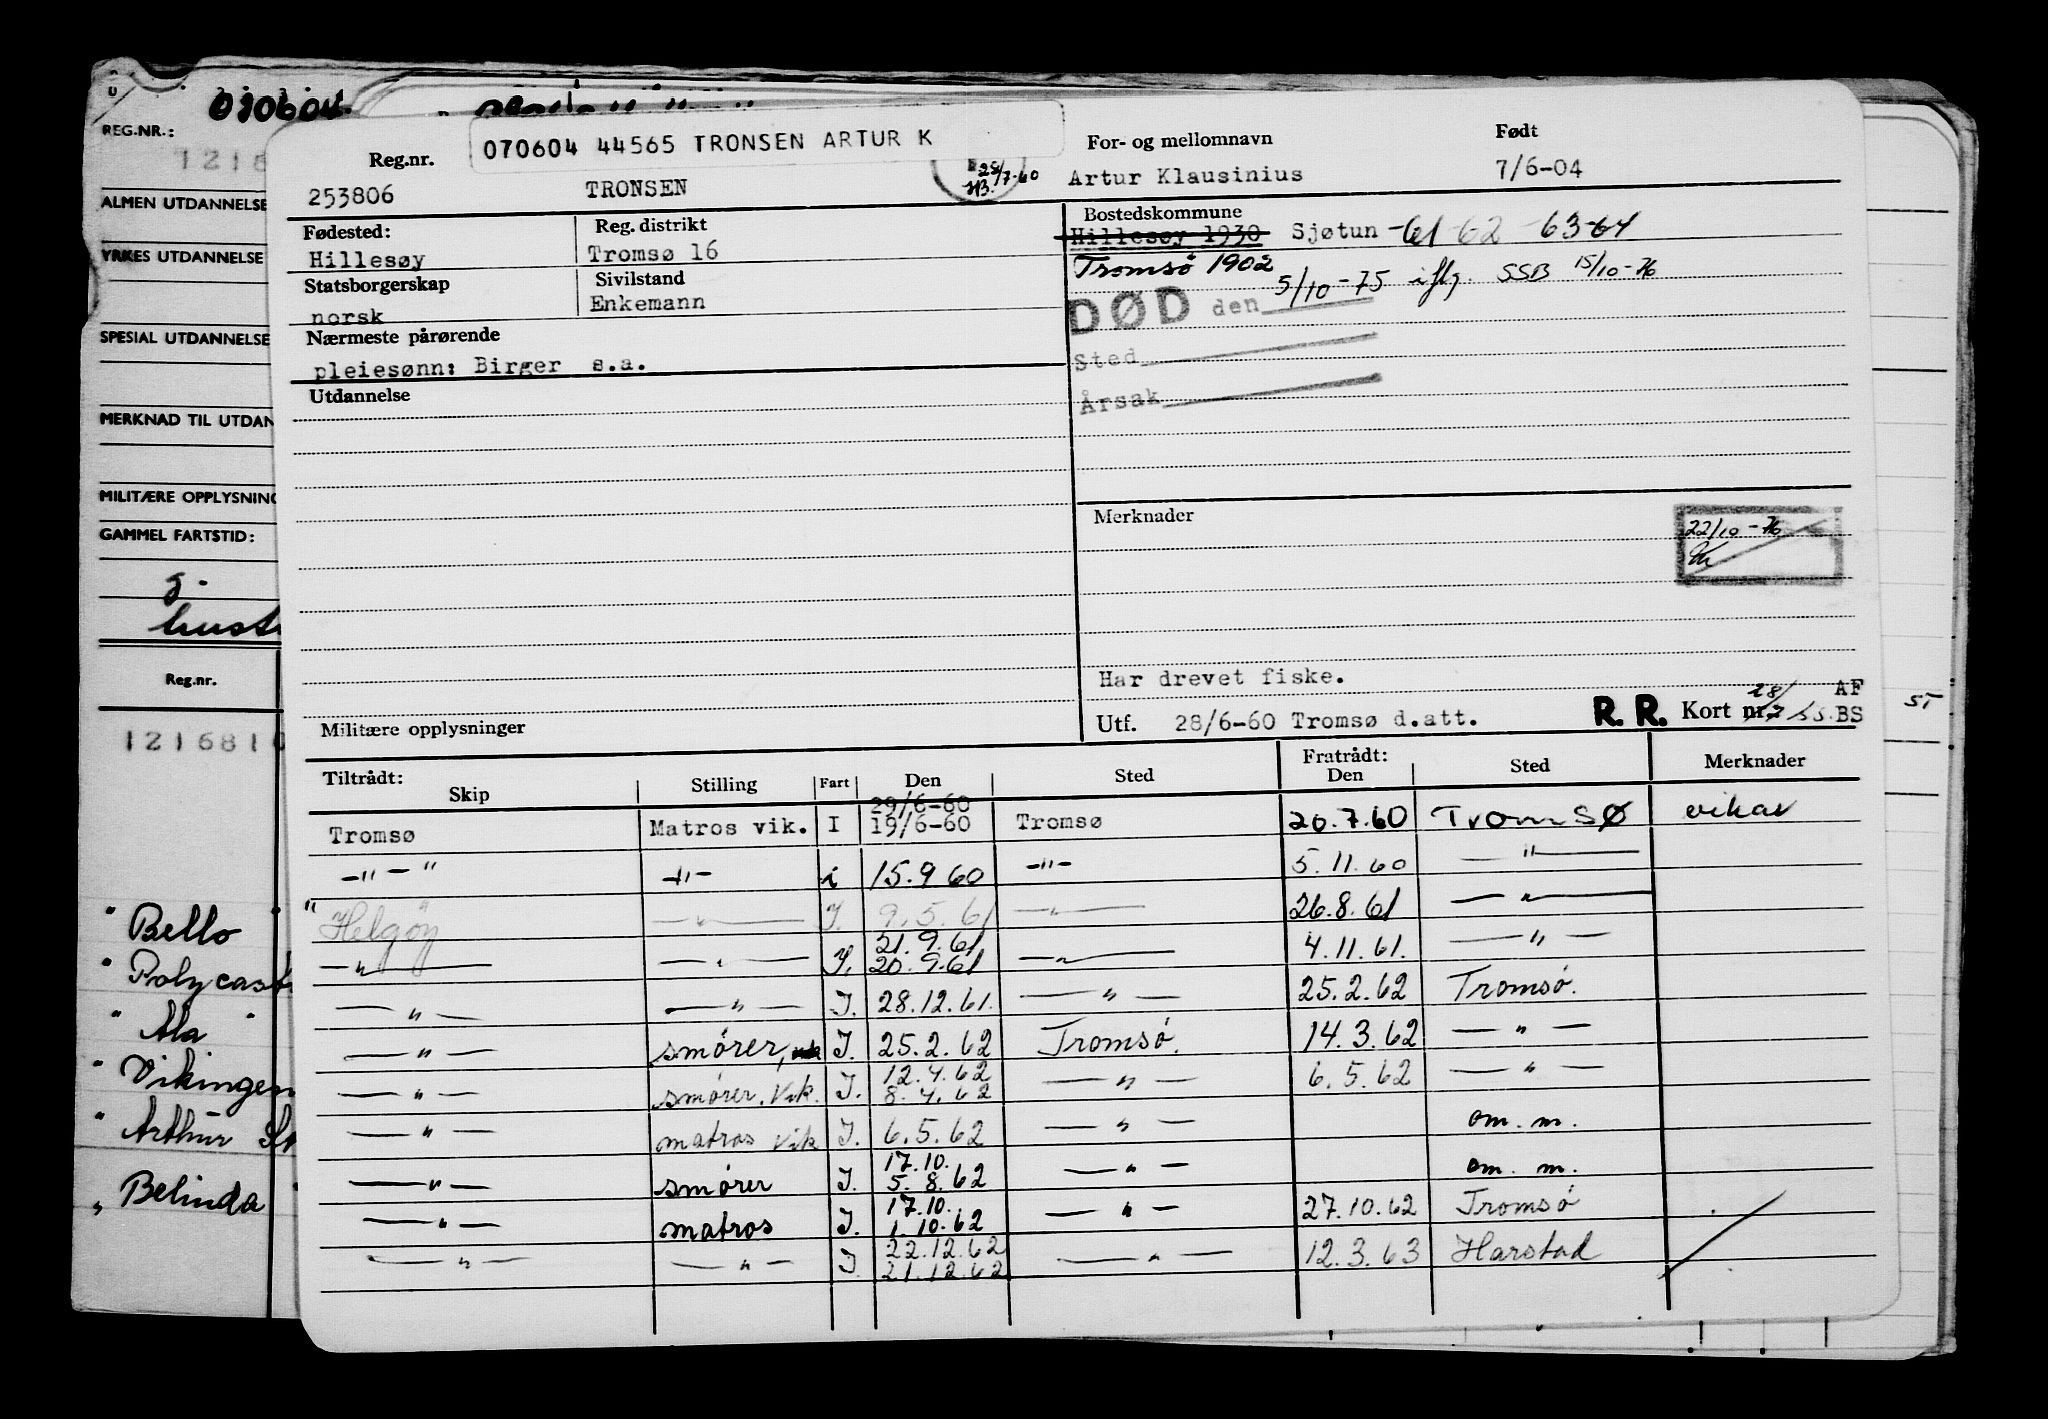 070604
REG.NR.:
ALMEN UTDANNELSE
YRKES UTDANNELSE
SPESIAL UTDANNELSE
MERKNAD TIL UTDAN
MILITÆRE OPPLYSNING
GAMMEL FARTSTID:
Reg.nr.
1216810
" Bello "
" Polycast
" Ala "
" Vikingen
" Arthur St
" Belinda
070604 44565 TRONSEN ARTUR K
Reg.nr. For- og mellomnavn Født
253806 TRONSEN 25/7-60 Artur Klausinius 7/6-04
Fødested: Reg. distrikt Bostedskommune
Hillesøy Tromsø 16 Hillesøy 1930 Sjøtun -61-62-63-64
Tromsø 1902
Statsborgerskap Sivilstand
norsk Enkemann
DØD den 5/10-75 iflg. SSB 15/10-76
Nærmeste pårørende
pleiesønn: Birger s.a.
Sted
Utdannelse
Årsak
Merknader
22/10-76
Har drevet fiske.
Militære opplysninger
Utf. 28/6-60 Tromsø d.att. R. R. Kort nr. AF
BS
Tiltrådt: Skip Stilling Fart Den Sted Fratrådt: Den Sted Merknader
29/6-60
Tromsø Matros vik. I 19/6-60 Tromsø 20.7.60 Tromsø vikar
-"- " -"- i 15.9 60 -"- 5.11.60 — " —
" Helgøy " — " — I. 9.5.61 — " — 26.8.61 — " —
21.9.61
— " — — " — I. 20.9.61 — " — 4.11.61. — " —
— " — — " — I. 28.12.61. — " — 25.2.62 Tromsø.
— " — smører, vik I. 25.2.62 Tromsø. 14.3.62 — " —
12.4.62
— " — smører. vik. I. 8.4.62 — " — 6.5.62 — " —
— " — matros vik I. 6.5.62 — " — om. m.
17.10.
— " — smører I. 5.8.62 — " — om. m.
17.10.
— " — matros I. 1.10.62 — " — 27.10.62 Tromsø
22.12.62
— " — — " — I. 21.12.62 — " — 12.3.63 Harstad